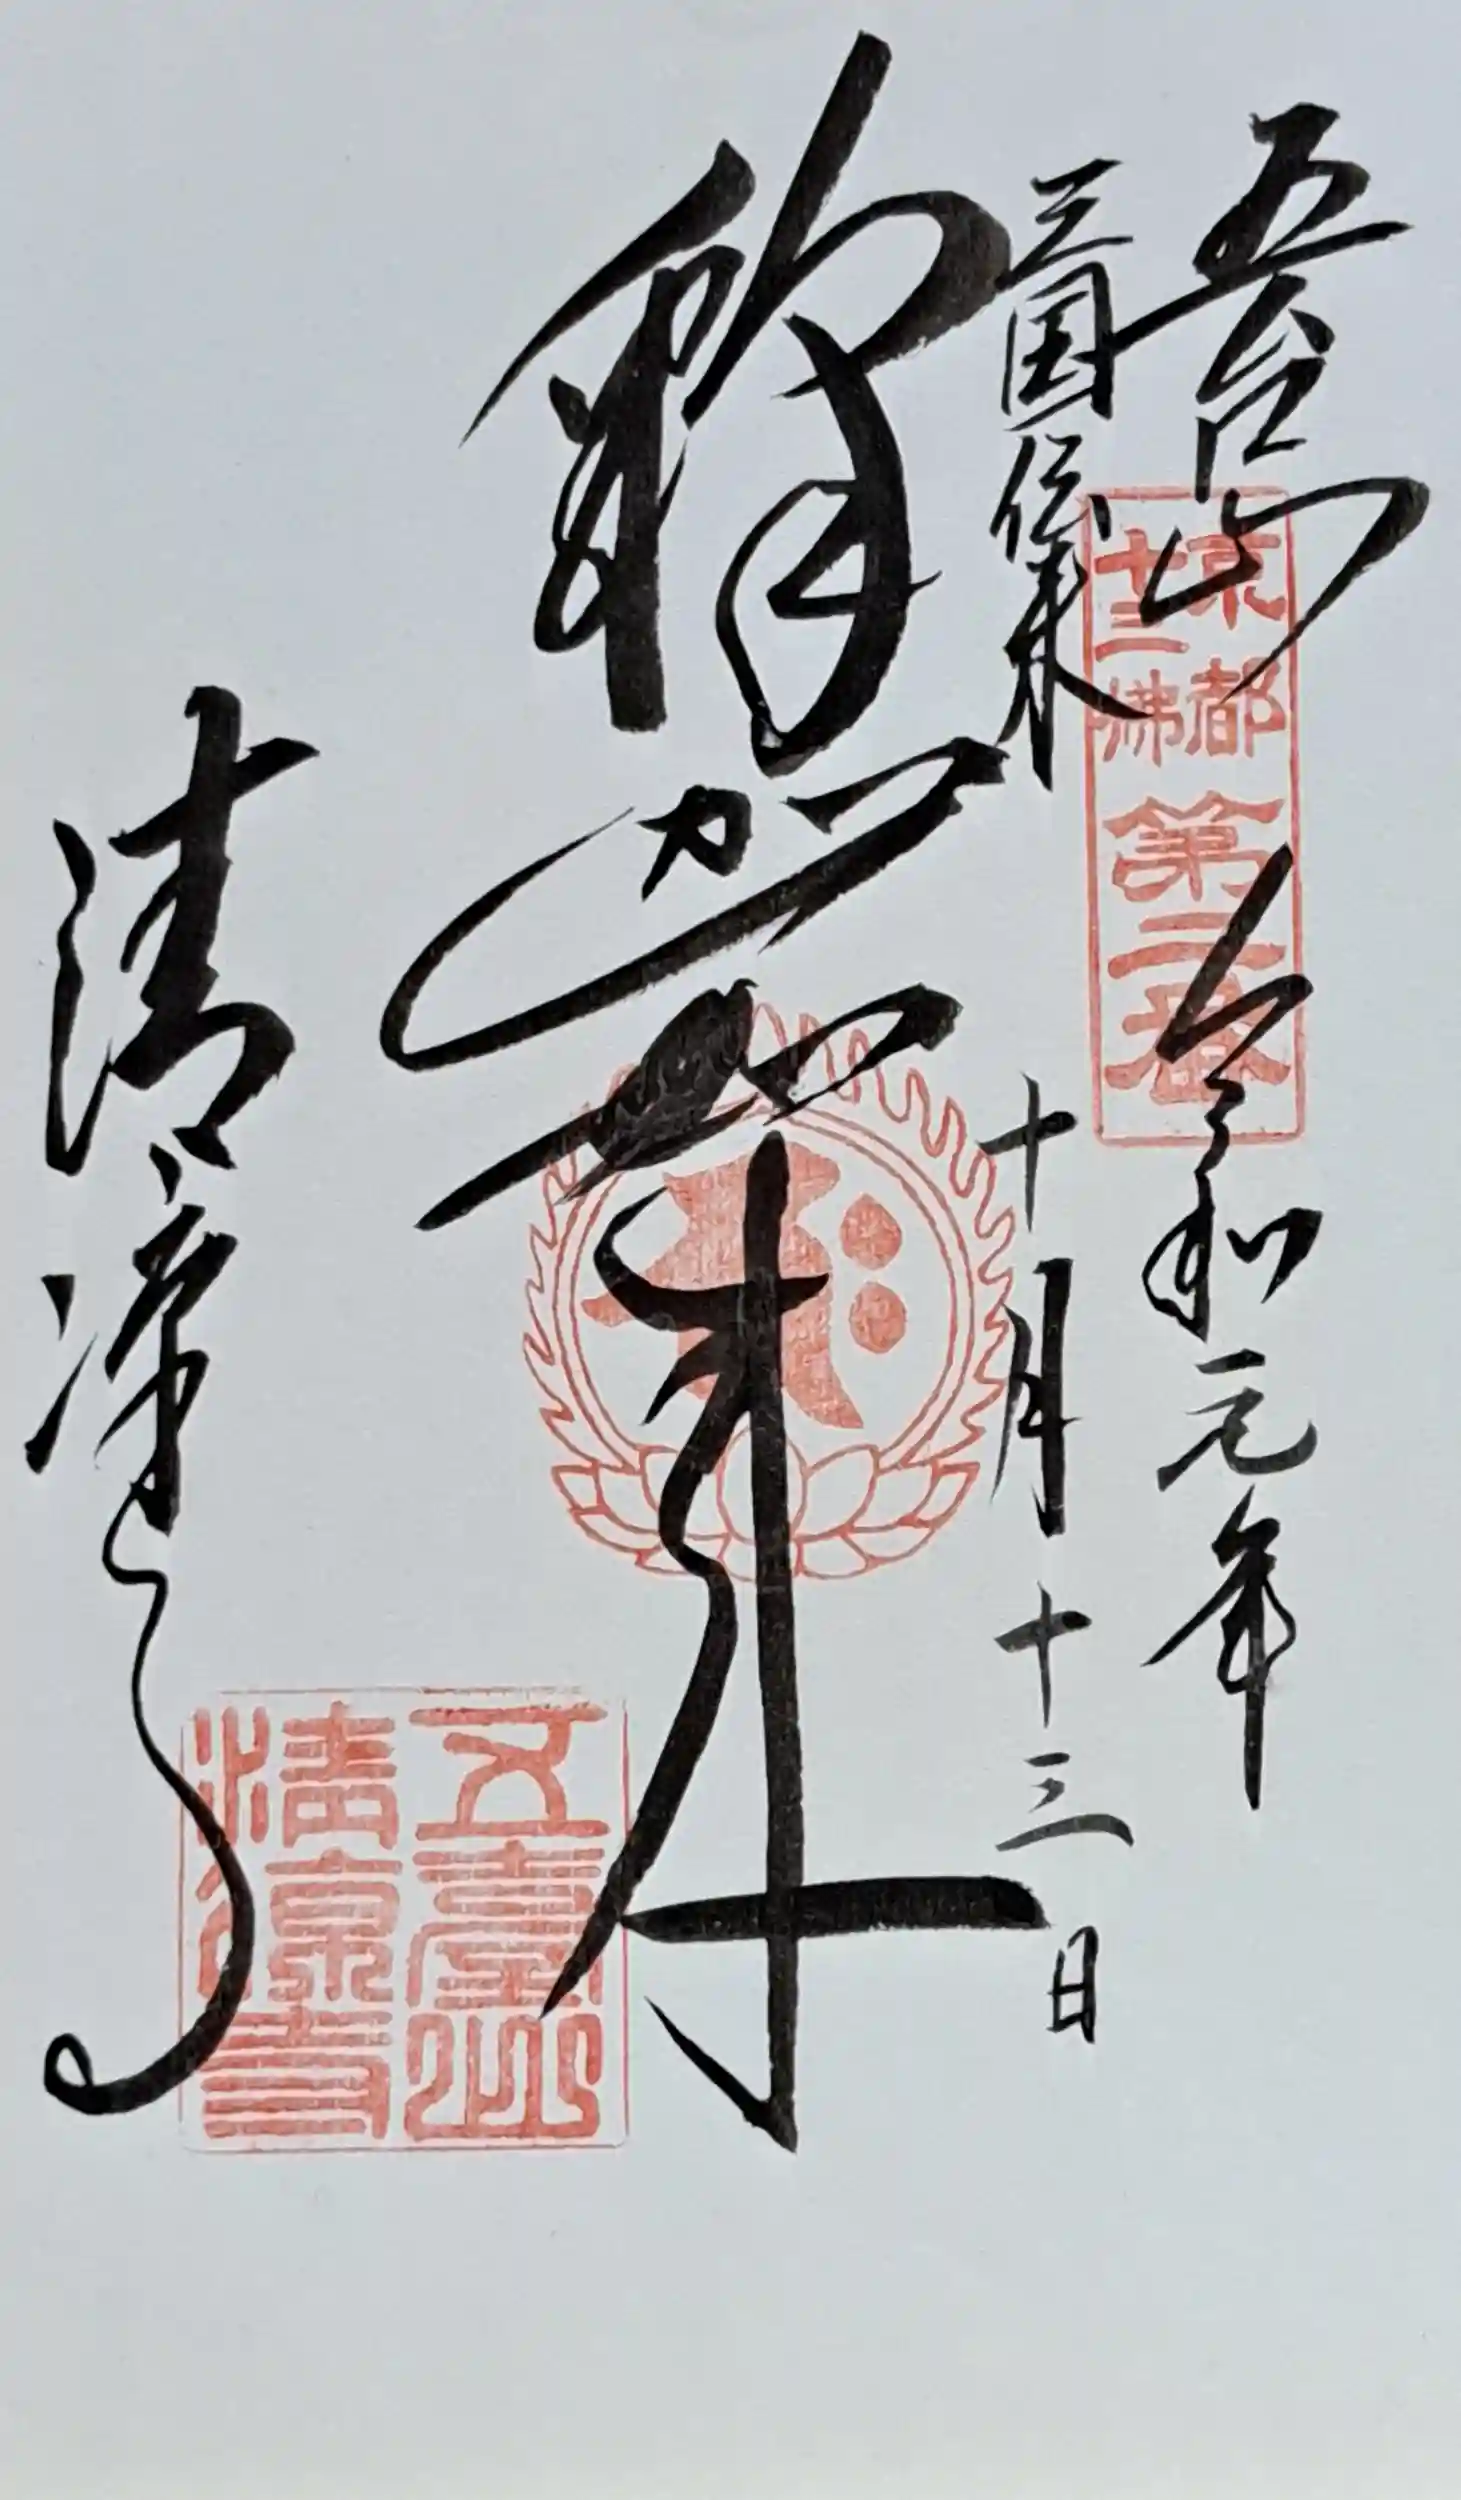 五台山
三国伝来
京都
十三佛
第二番
令和元年
十月十三日
釋迦如来
清凉寺
五臺山
清凉寺